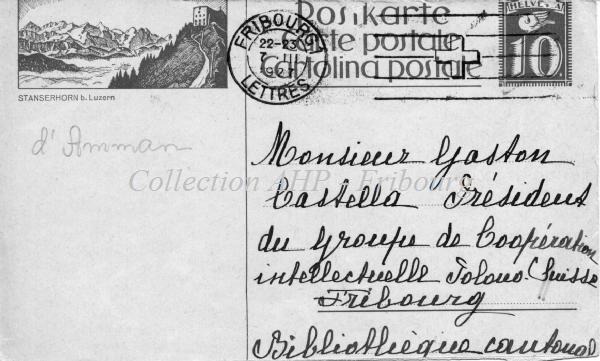 Postkarte
Carte postale
Cartolina postale
HELVETIA
10
FRIBOURG 1
22-23
7. III
LETTRES
STANSERHORN b. Luzern
d'Amman
Collection AHP - Fribourg
Monsieur Gaston
Castella Président
du Groupe de Coopération
intellectuelle Polono-Suisse
Fribourg
Bibliothèque cantonal